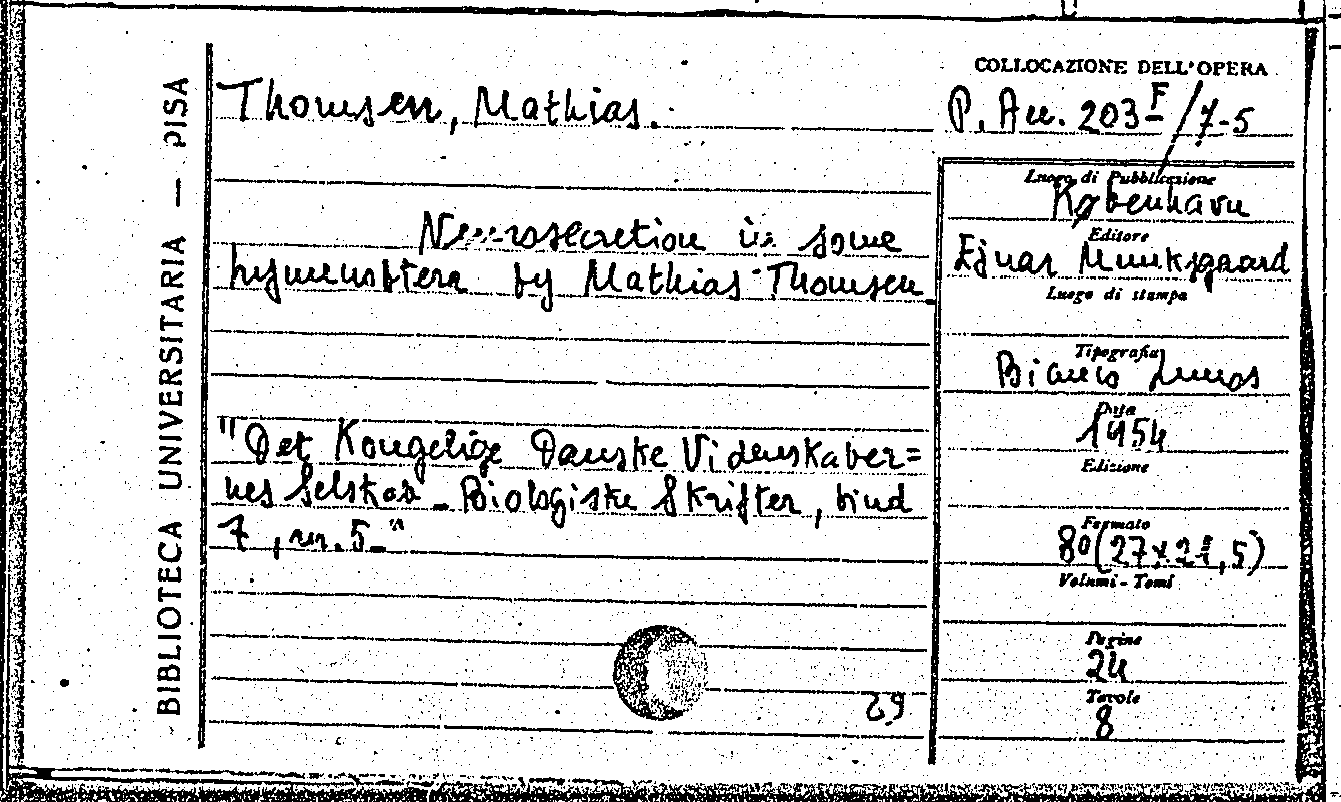 BIBLIOTECA UNIVERSITARIA — PISA
Thomsen, Mathias.
Neurosecretion in some
hymenoptera by Mathias Thomsen.
"Det Kongelige Danske Videnskaber=
nes Selskab - Biologiske Skrifter, bind
7, nr. 5."
29
COLLOCAZIONE DELL'OPERA
P. Acc. 203 F/7-5
Luogo di Pubblicazione
København
Editore
Ejnar Munksgaard
Luogo di stampa
Tipografia
Bianco Lunos
Data
1954
Edizione
Formato
8º(27x21,5)
Volumi - Tomi
Pagine
24
Tavole
8